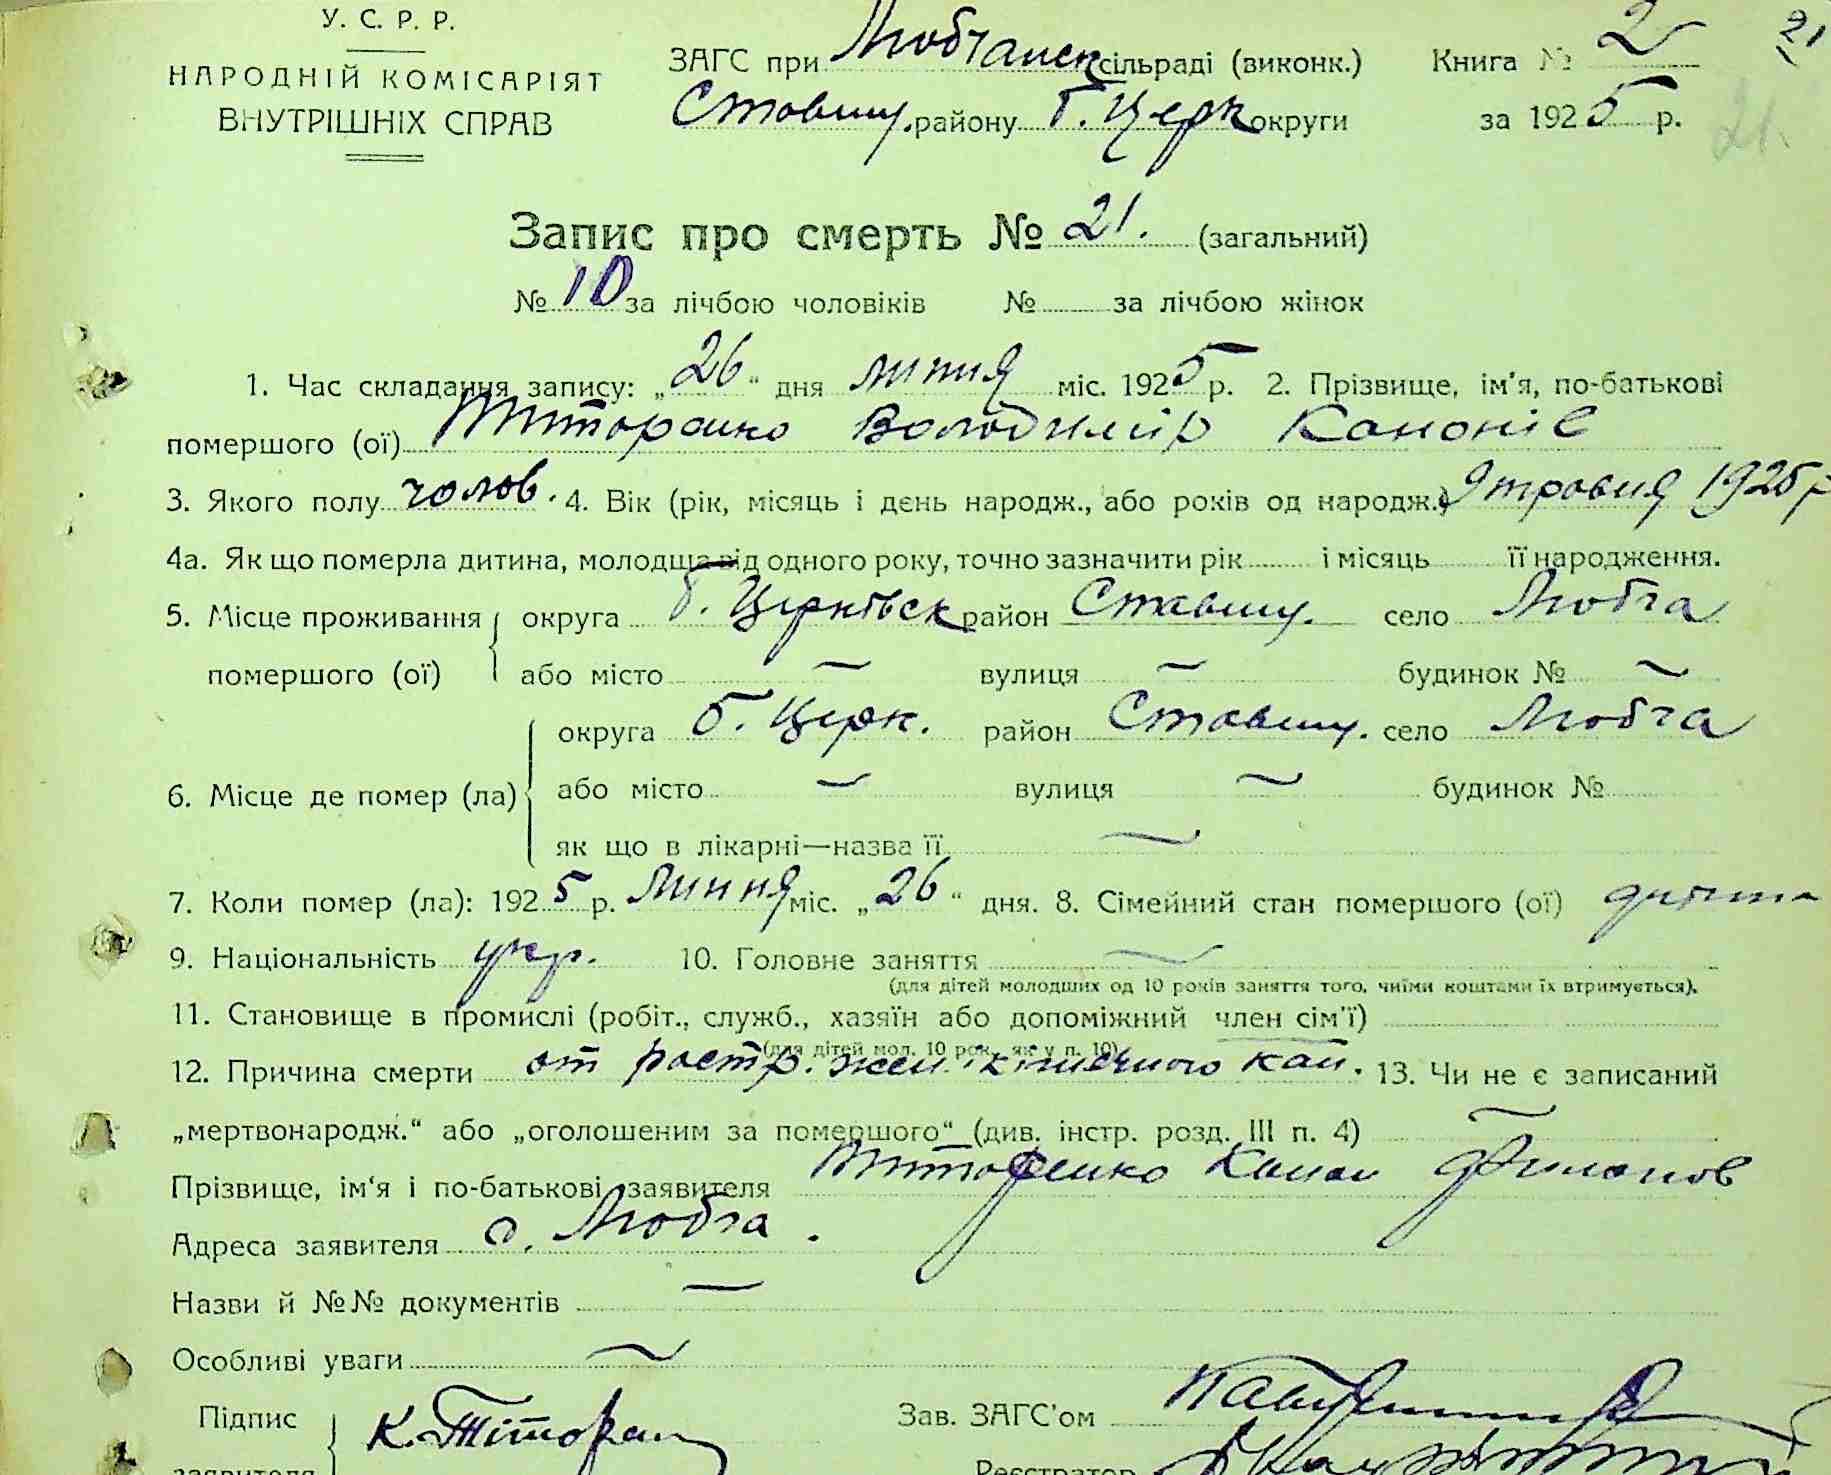 У. С. Р. Р.
НАРОДНІЙ КОМІСАРІЯТ
ВНУТРІШНІХ СПРАВ
ЗАГС при Любчанск сільраді (виконк.) Книга № 2 21
Ставищ. району Б. Церк округи за 1925 р. 21.
Запис про смерть № 21. (загальний)
№ 10 за лічбою чоловіків № за лічбою жінок
1. Час складання запису: „26“ дня липня міс. 1925 р. 2. Прізвище, ім'я, по-батькові
помершого (ої) Тіторенко Володимір Кононів
3. Якого полу чолов. 4. Вік (рік, місяць і день народж., або років од народж.) 9 травня 1925 р
4а. Як що померла дитина, молодща від одного року, точно зазначити рік і місяць її народження.
5. Місце проживання помершого (ої) округа Б. Церківськ район Ставищ. село Любча
або місто — вулиця — будинок № —
6. Місце де помер (ла) округа Б. Церк. район Ставищ. село Любча
або місто — вулиця — будинок №
як що в лікарні—назва її —
7. Коли помер (ла): 1925 р. липня міс. „26“ дня. 8. Сімейний стан помершого (ої) дитина
9. Національність укр. 10. Головне заняття —
(для дітей молодших од 10 років заняття того, чиїми коштами їх втримується).
11. Становище в промислі (робіт., служб., хазяїн або допоміжний член сім'ї)
(для дітей мол. 10 рок. як у п. 10)
12. Причина смерти от растр. жел. кишечного кан. 13. Чи не є записаний
„мертвонародж.“ або „оголошеним за помершого“ (див. інстр. розд. III п. 4) —
Прізвище, ім'я і по-батькові заявителя Тіторенко Конон Филонов
Адреса заявителя с. Любча.
Назви й №№ документів —
Особливі уваги —
Підпис К. Тіторен Зав. ЗАГС'ом
заявителя Реєстратор